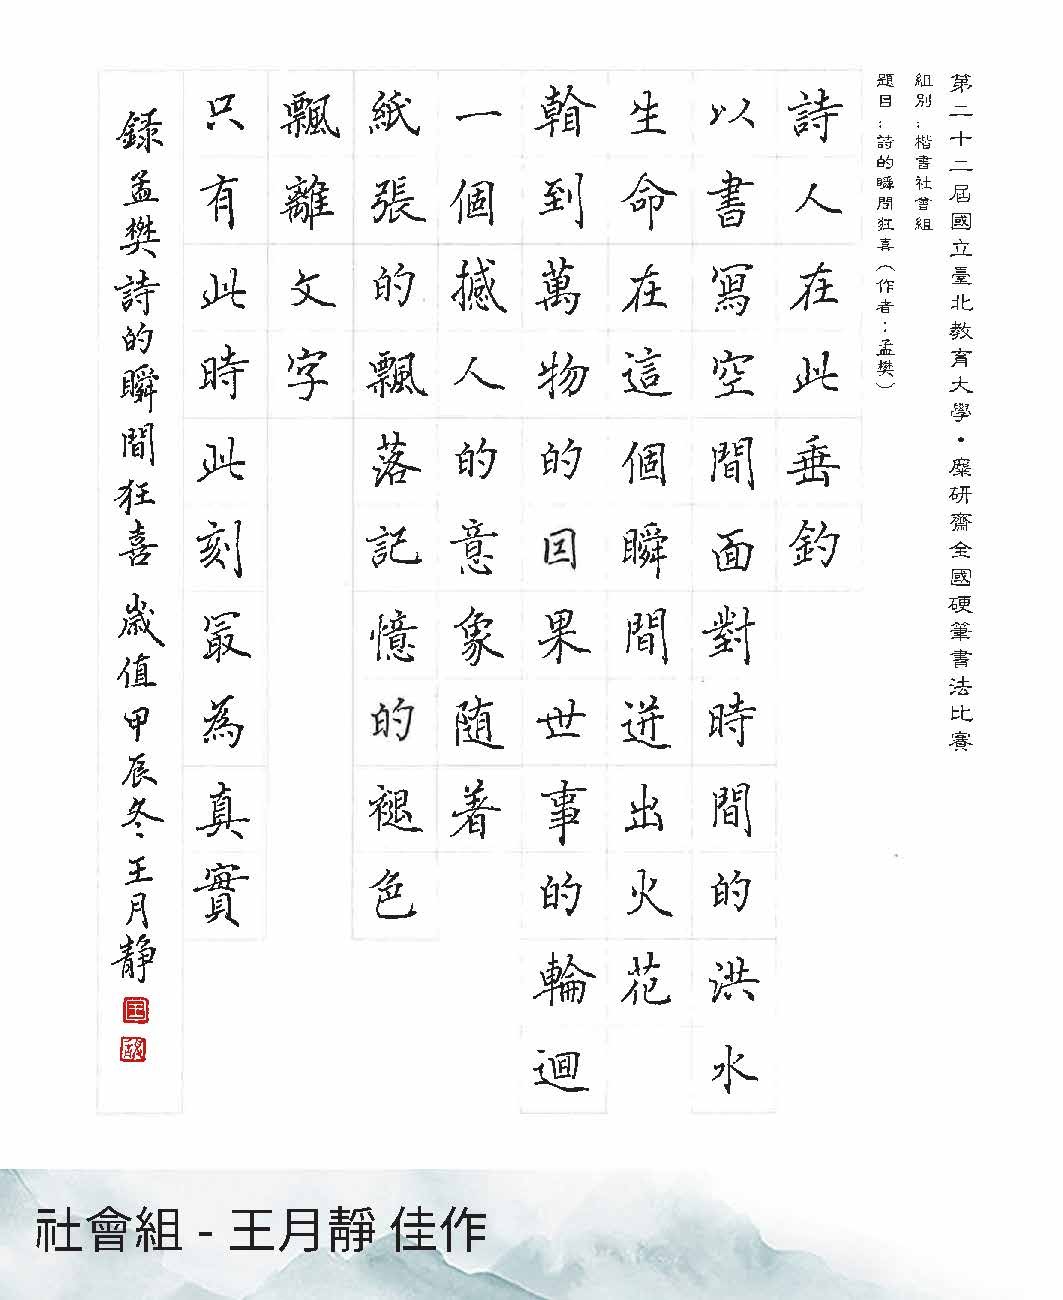 第二十二屆國立臺北教育大學・麋研齋全國硬筆書法比賽
組別：楷書社會組
題目：詩的瞬間狂喜（作者：孟樊）
詩人在此垂釣
以書寫空間面對時間的洪水
生命在這個瞬間迸出火花
翰到萬物的因果世事的輪迴
一個撼人的意象隨著
紙張的飄落記憶的褪色
飄離文字
只有此時此刻最為真實
錄孟樊詩的瞬間狂喜 歲值甲辰冬 王月靜
社會組 - 王月靜 佳作